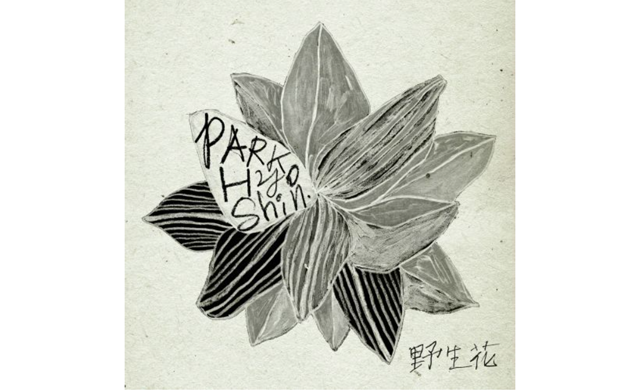 PARK
Hyo
Shin.
野生花